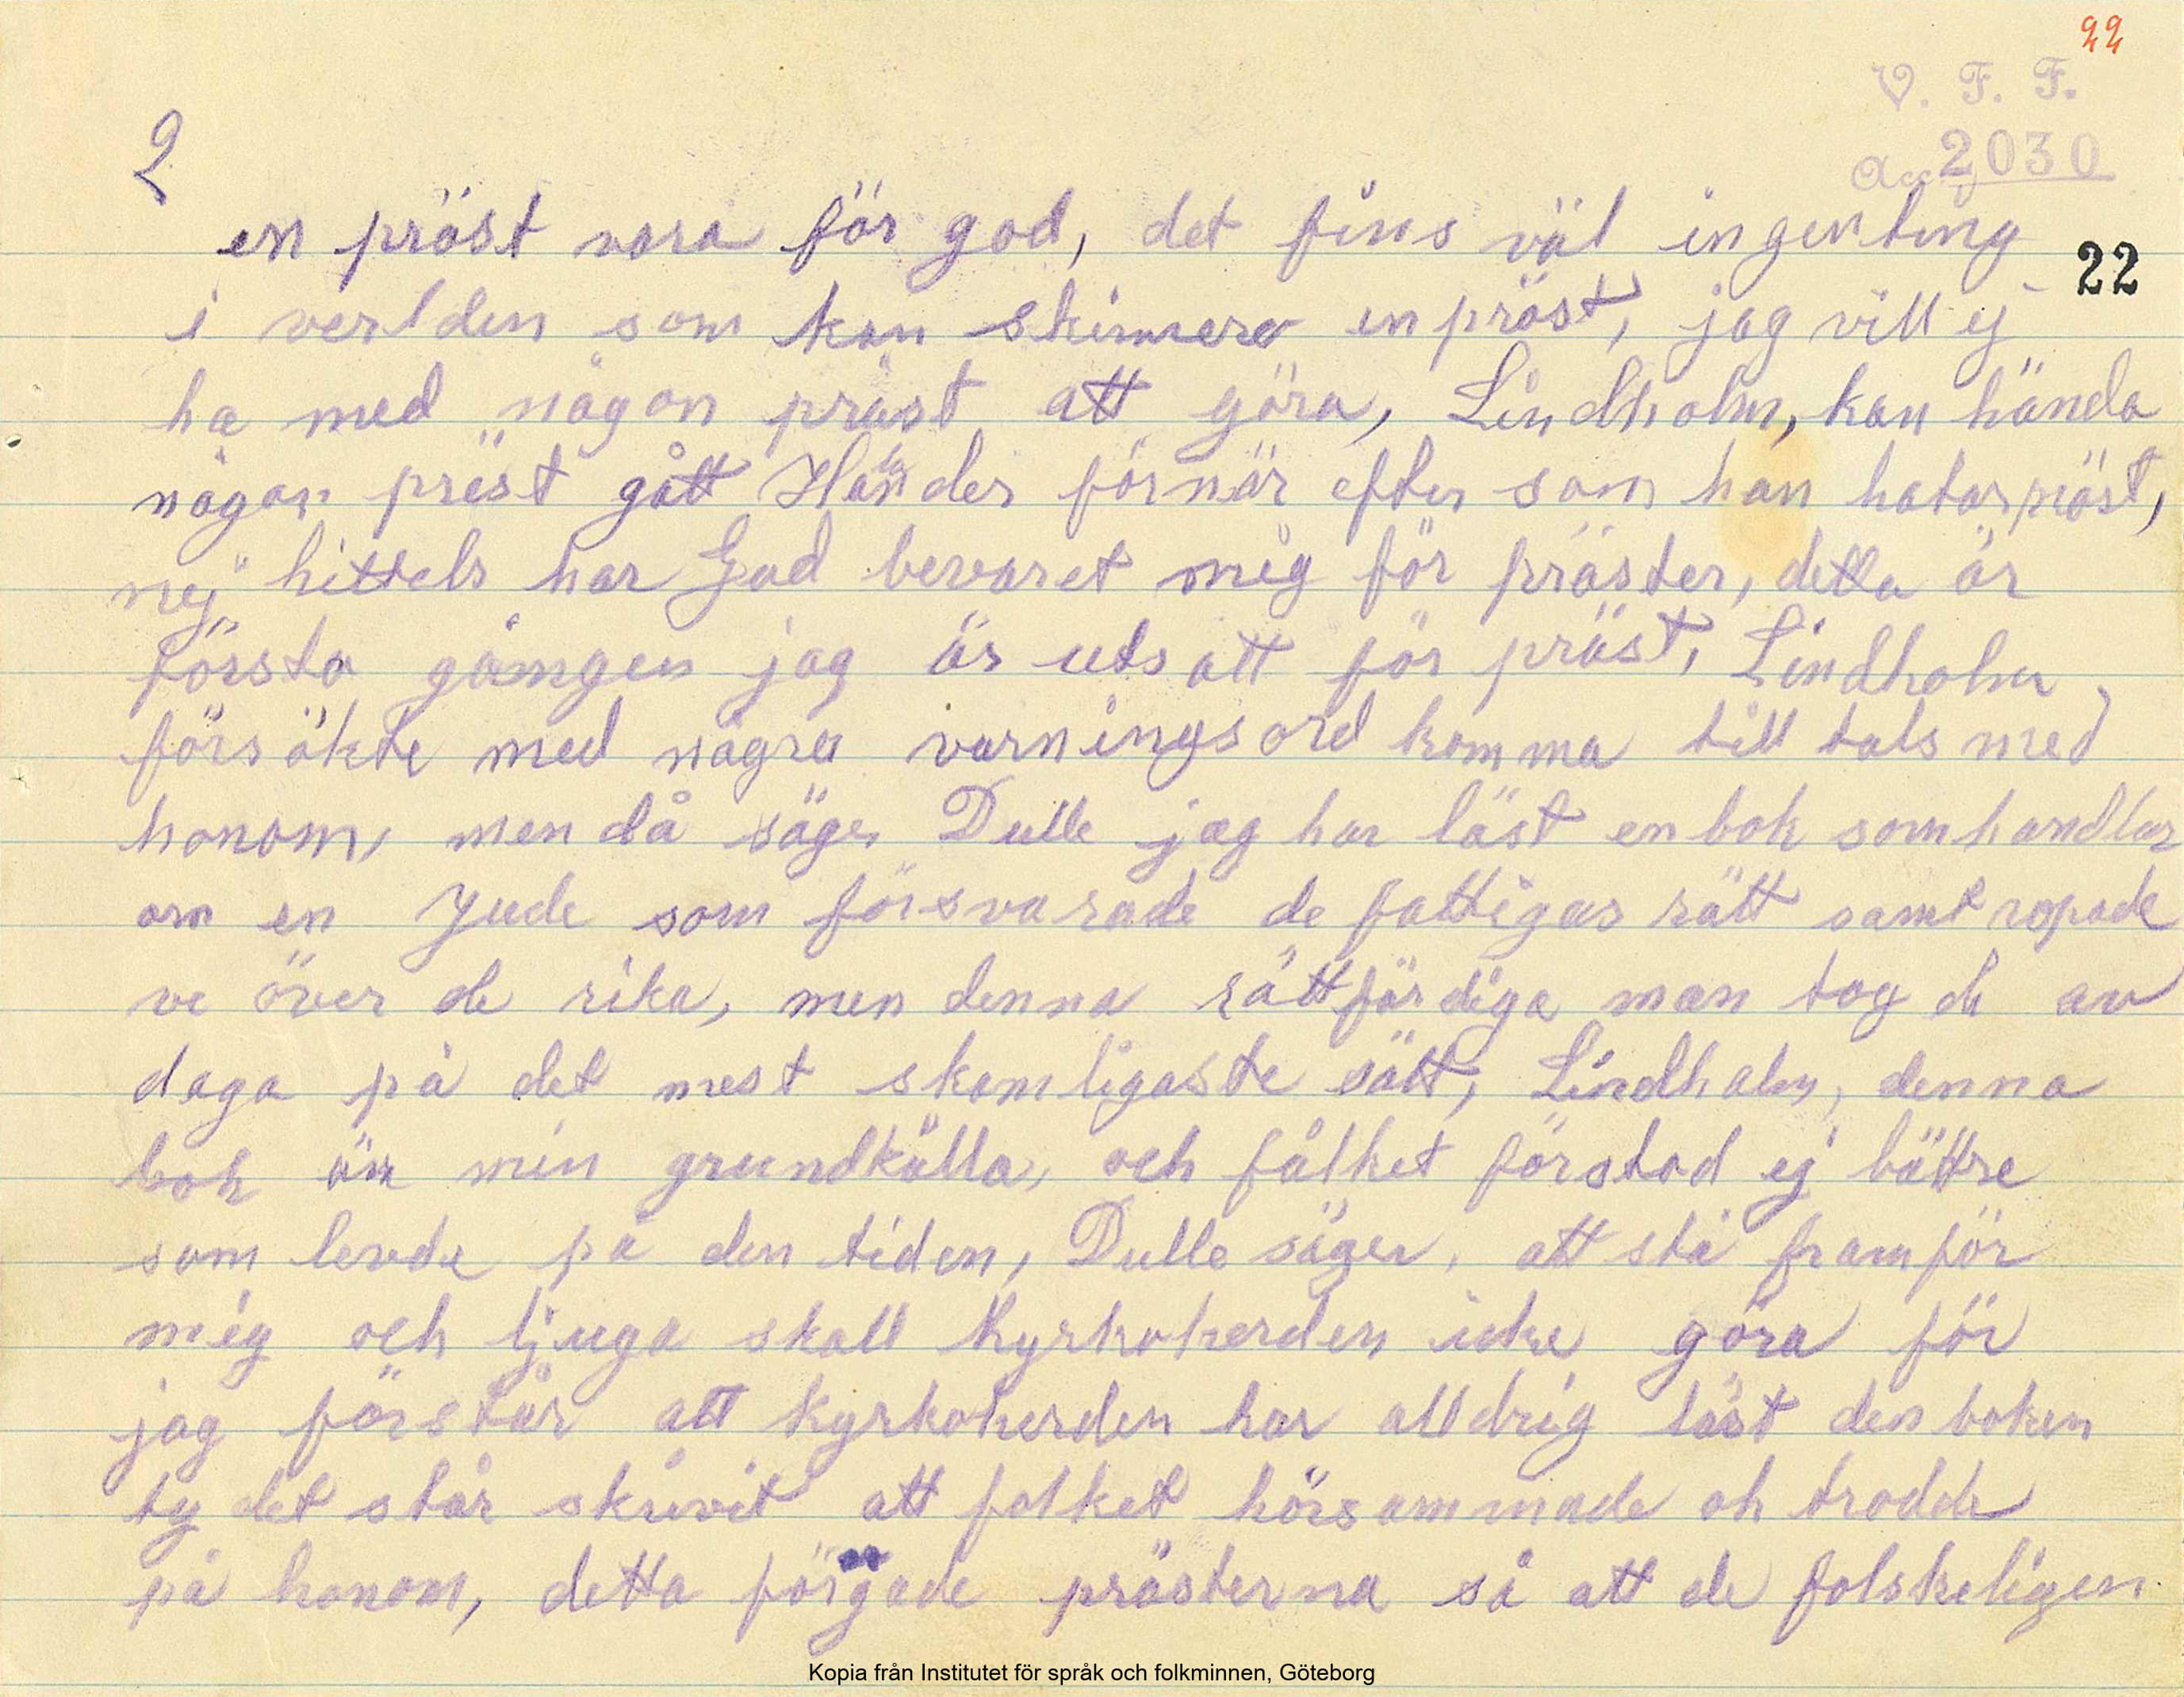 22
V. F. F.
Acc 2030
2
en präst vara för god, det fins väl ingenting
22
i verlden som kan skimera en präst, jag vill ej
ha med någon präst att göra, Lindholm, kan hända
någon präst gått Händer förnär efter som han hatar präst,
nej hittels har Gud bevaret mig för präster, detta är
första gången jag är utsatt för präst, Lindholm
försökte med några varningsord komma till tals med
honom, men då säger Dulle jag har läst en bok som handlar
om en Jude som försvarade de fattigas rätt samt ropade
ve över de rika, men denna rättfärdiga man tog de av
daga på det mest skamligaste sätt, Lindholm, denna
bok är min grundkälla, och fålket förstod ej bättre
som levde på den tiden, Dulle säger, att stå framför
mig och ljuga skall Kyrkoherden icke göra för
jag förstår att Kyrkoherden har alldrig läst den boken
ty det står skrivit att folket hörsammade oh trodde
på honom, detta förgade prästerna så att de folskeligen
Kopia från Institutet för språk och folkminnen, Göteborg